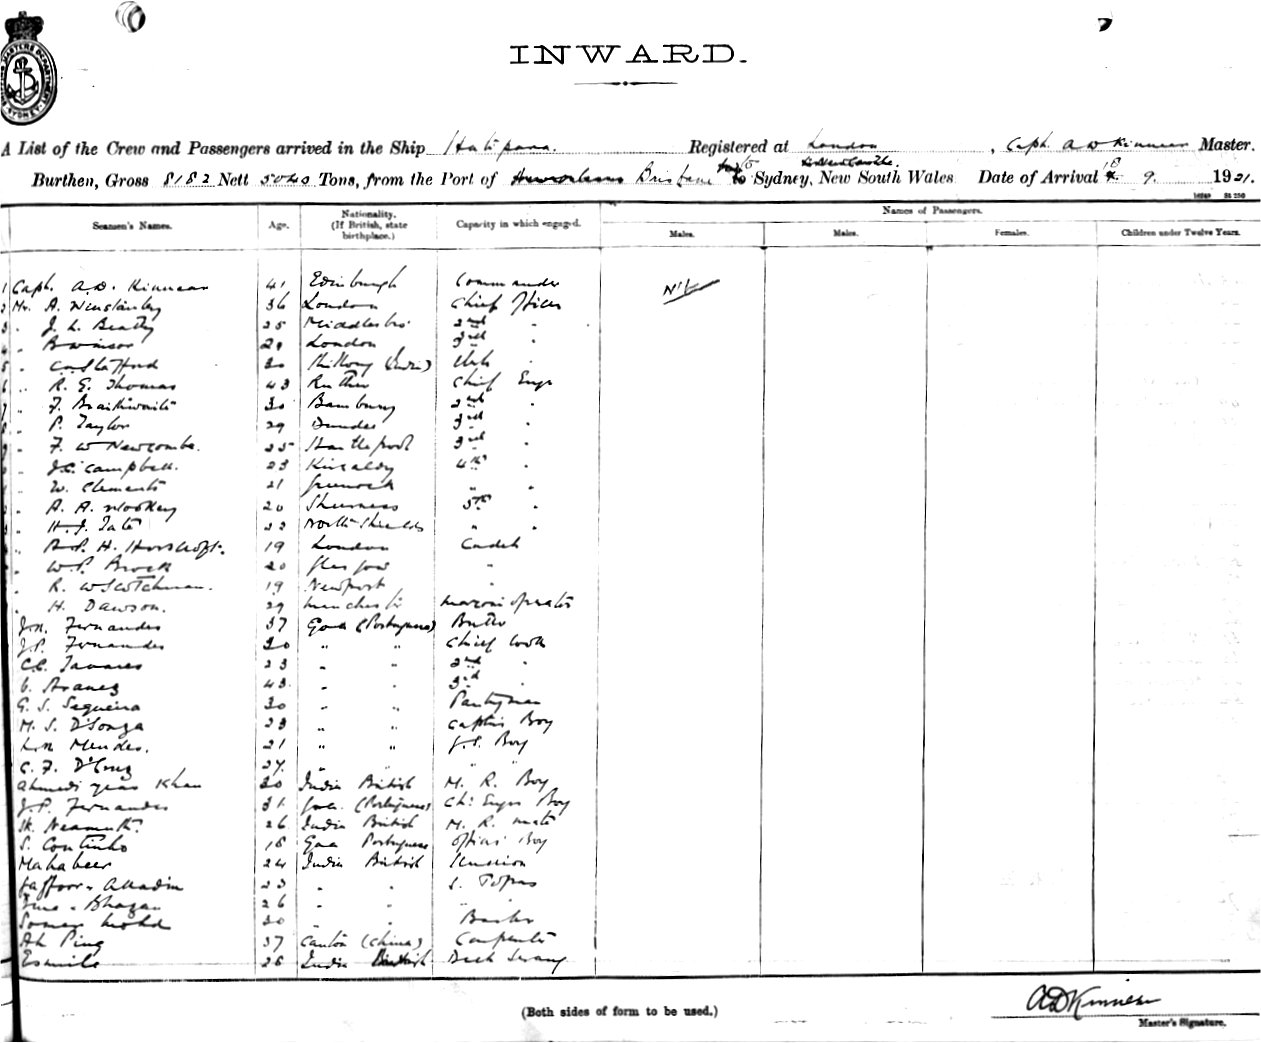 INWARD.
A List of the Crew and Passengers arrived in the Ship Registered at London, Capt. A D Kinnear Master.
Burthen, Gross 8182 Nett 5040 Tons, from the Port of Brisbane to Sydney, New South Wales Date of Arrival 9. 1921.
Seamen's Names. Age. Nationality. (If British, state birthplace.) Capacity in which engaged. Names of Passengers.
Males. Males. Females. Children under Twelve Years.
1 Capt. A.D. Kinnear 41 Edinburgh Commander Nil
2 Mr. A. Winstanley 36 London Chief Officer
3 " J. L. Beatty 25 Middlesbro' 2nd "
4 " 21 London 3rd "
5 " 20 (India) Clerk
6 " R. G. Thomas 43 Chief Engr
7 " F. Braithwaite 30 Bambury 2nd "
8 " P. Taylor 29 Dundee 3rd "
" F. W Newcombe. 25 Hartlepool 3rd "
" J.C. Campbell. 23 Kircaldy 4th "
" W. Clements 21 Greenock " "
" A. A. Wookey 20 Sheerness 5th "
" H. J. Tate 22 North Shields " "
" H. Horscroft. 19 London Cadet
" W. P. Brock 20 Glasgow "
" R. W Scotchman. 19 Newport "
" H. Dawson. 29 Manchester Marconi Operator
J.M. Fernandes 37 Goa (Portuguese) Butler
J.P. Fernandes 30 " " Chief Cook
C.C. Tavares 23 " " 2nd "
43 " " 3rd "
G. S. Sequeira 30 " " Pantryman
M. S. D'Souza 23 " " Captns Boy
L.M Mendes. 21 " " G.S. Boy
C. F. D'Cruz 27 " " " "
Khan 30 India British M. R. Boy
J.P. Fernandes 31 Goa (Portuguese) Ch: Engrs Boy
Sk. 26 India British M. R. mate
S. Coutinho 18 Goa Portuguese Officers Boy
Mahabeer 24 India British
Gaffoor Alladin 23 " " S. Topas
Bhagan 26 " " " "
30 " "
Ah Ping 37 Canton (China) Carpenter
Esmile 26 India British Deck Serang
(Both sides of form to be used.)
A D Kinnear
Master's Signature.